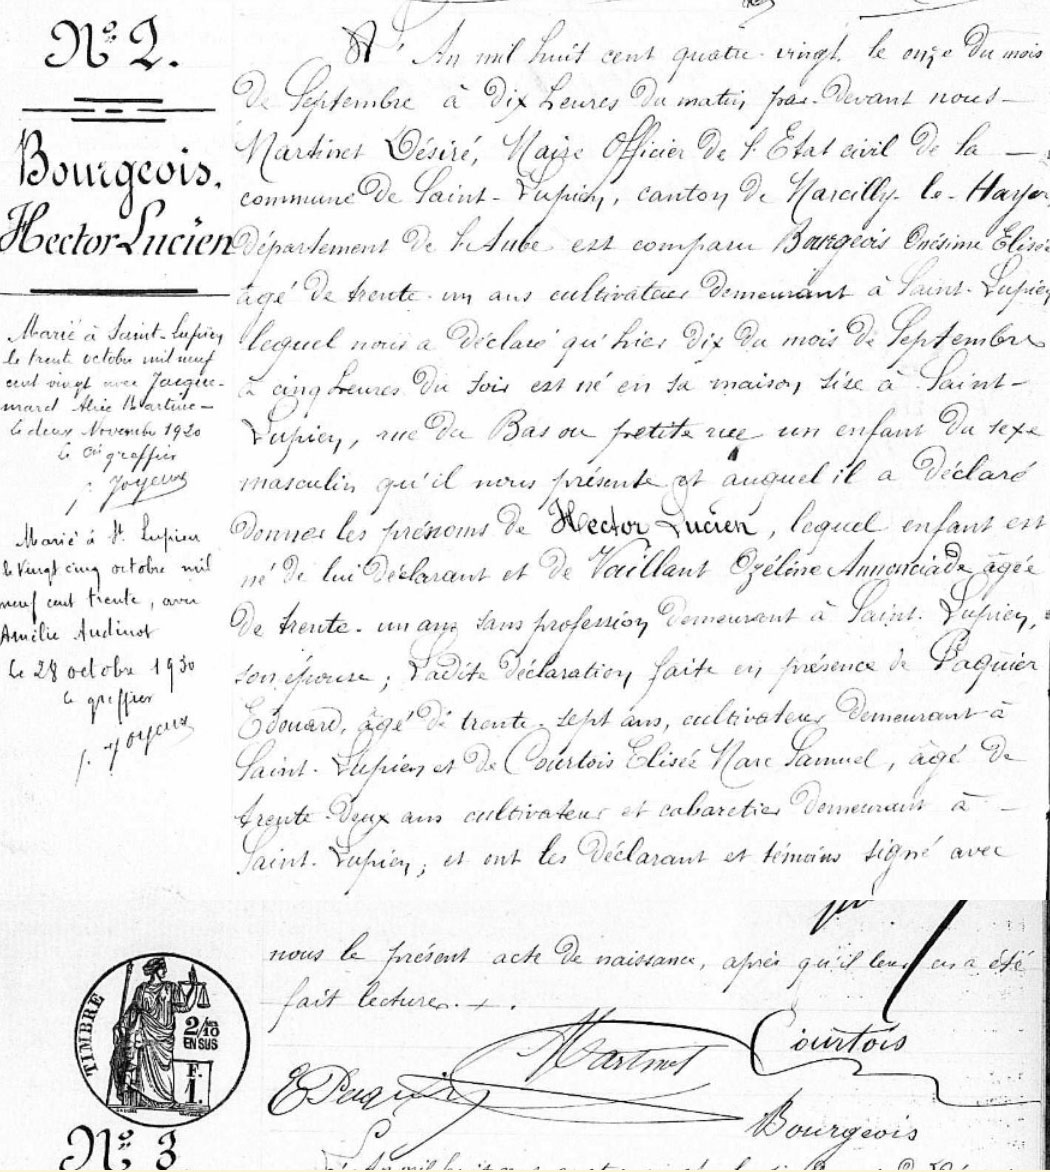 N° 2.
Bourgeois,
Hector Lucien
Marié à Saint-Lupien
le trent octobre mil neuf
cent vingt avec Jacque-
mard Alice Martine -
Le deux Novembre 1920
Le greffier
Joyeux
Marié à St Lupien
le vingt cinq octobre mil
neuf cent trente, avec
Amélie Audinot
Le 28 octobre 1930
Le greffier
Joyeux
L'An mil huit cent quatre-vingt, le onze du mois
de Septembre à dix heures du matin, par-devant nous-
Martinet Désiré, Maire Officier de l'Etat civil de la -
commune de Saint-Lupien, canton de Marcilly-le-Hayer,
département de l'Aube est comparu Bourgeois Onésime Elisée
âgé de trente-un ans cultivateur demeurant à Saint-Lupien
lequel nous a déclaré qu'hier dix du mois de Septembre
à cinq heures du soir est né en sa maison, sise à Saint-
Lupien, rue du Bas ou petite rue un enfant du sexe
masculin qu'il nous présente et auquel il a déclaré
donner les prénoms de Hector Lucien, lequel enfant est
né de lui déclarant et de Vaillant Ozéline Annonciade âgée
de trente-un ans sans profession demeurant à Saint-Lupien,
son épouse; Ladite déclaration faite en présence de Paquier
Edouard, âgé de trente-sept ans, cultivateur demeurant à
Saint-Lupien et de Courtois Elisée Marc Samuel, âgé de
trente-deux ans cultivateur et cabaretier demeurant à -
Saint-Lupien; et ont les déclarant et témoins signé avec
nous le présent acte de naissance, après qu'il leur en a été
fait lecture.
TIMBRE
2/10 EN SUS
F. 1.
Martinet
Courtois
E Paquier
Bourgeois
N° 3